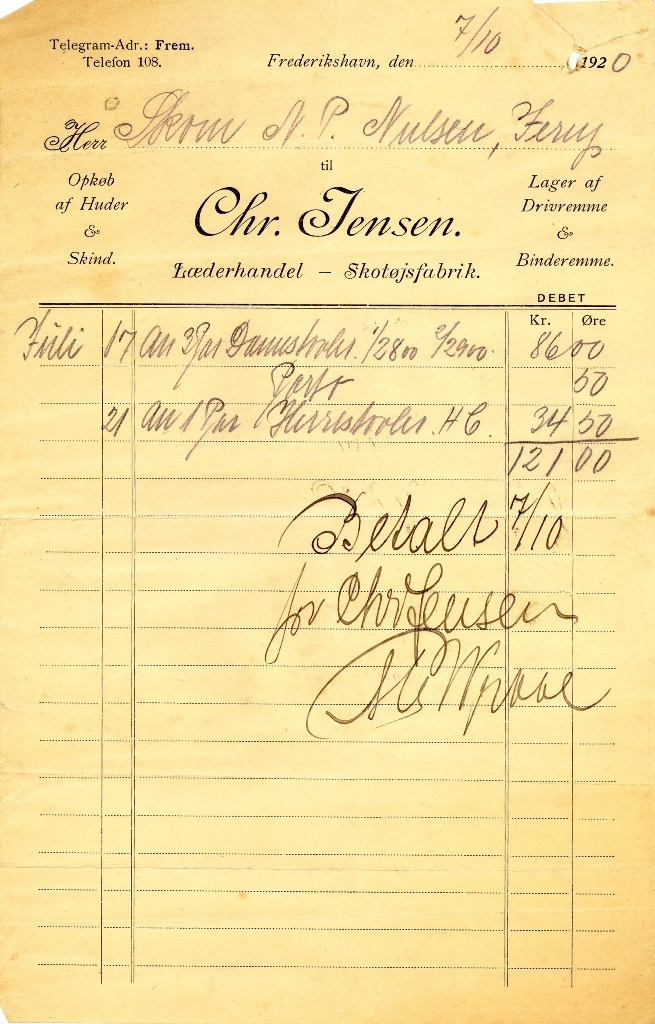 Telegram-Adr.: Frem.
Telefon 108.
Frederikshavn, den 7/10 1920
Herr Skom N. P. Nielsen, Jerup
til
Opkøb
af Huder
&
Skind.
Chr. Jensen.
Læderhandel – Skotøjsfabrik.
Lager af
Drivremme
&
Binderemme.
DEBET
Kr. Øre
Juli 17 An 3 Par Damestøvler 1/2800 2/2900 86 00
Porto 50
21 An 1 Par Herrestøvler H C. 34 50
121 00
Betalt 7/10
for Chr Jensen